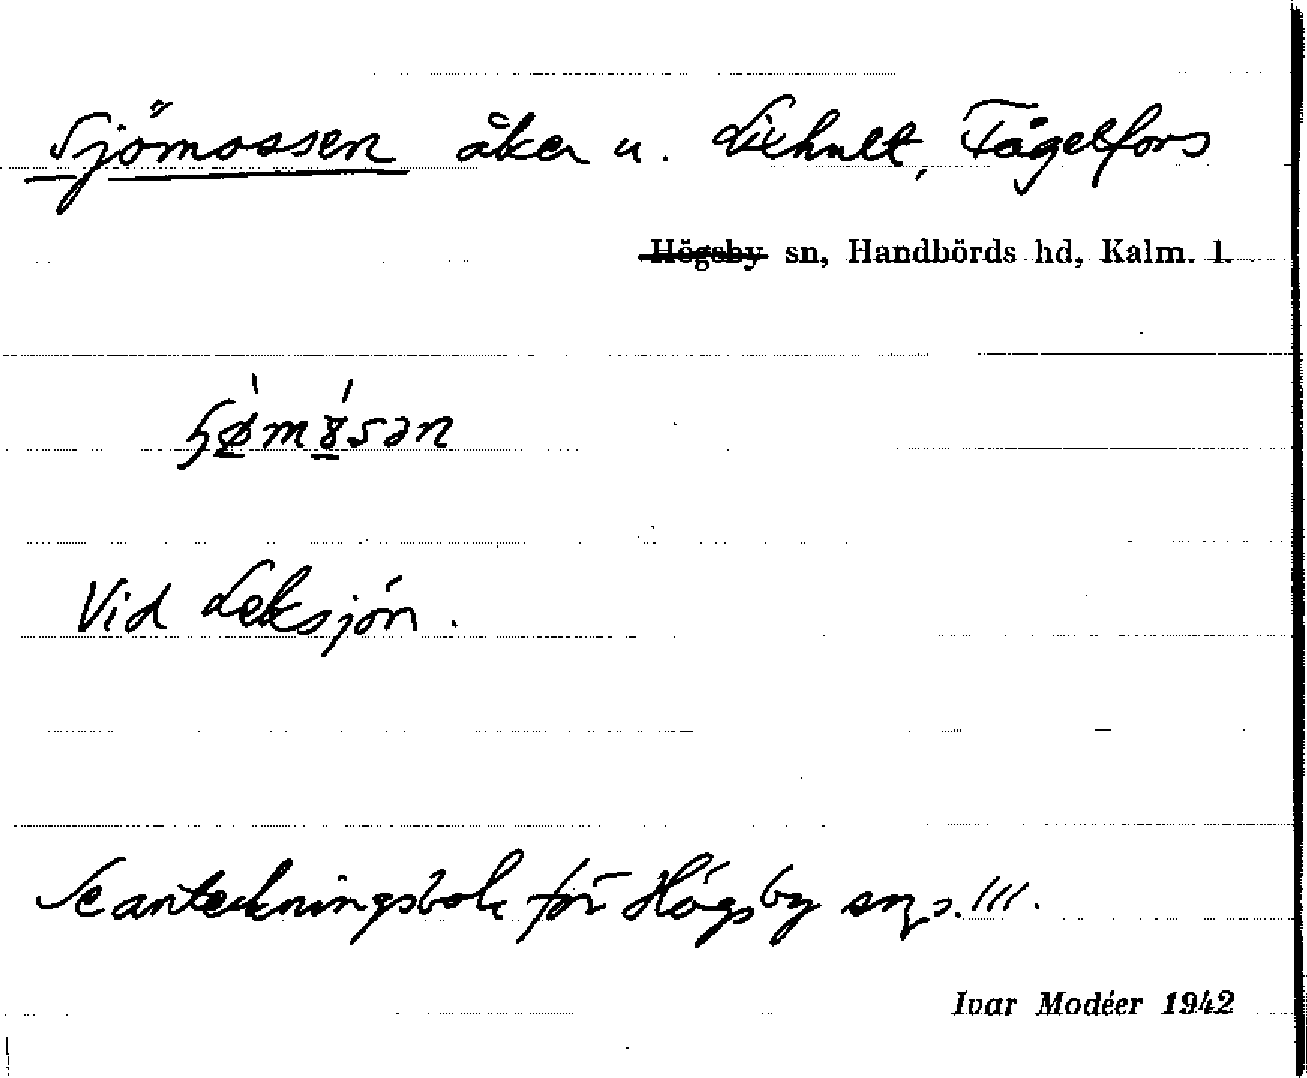 Sjömossen åker u. Lixhult, Fågelfors
Högsby sn, Handbörds hd, Kalm. l.
Vid Leksjön.
Se anteckningsbok för Högsby sn, s. 111.
Ivar Modéer 1942